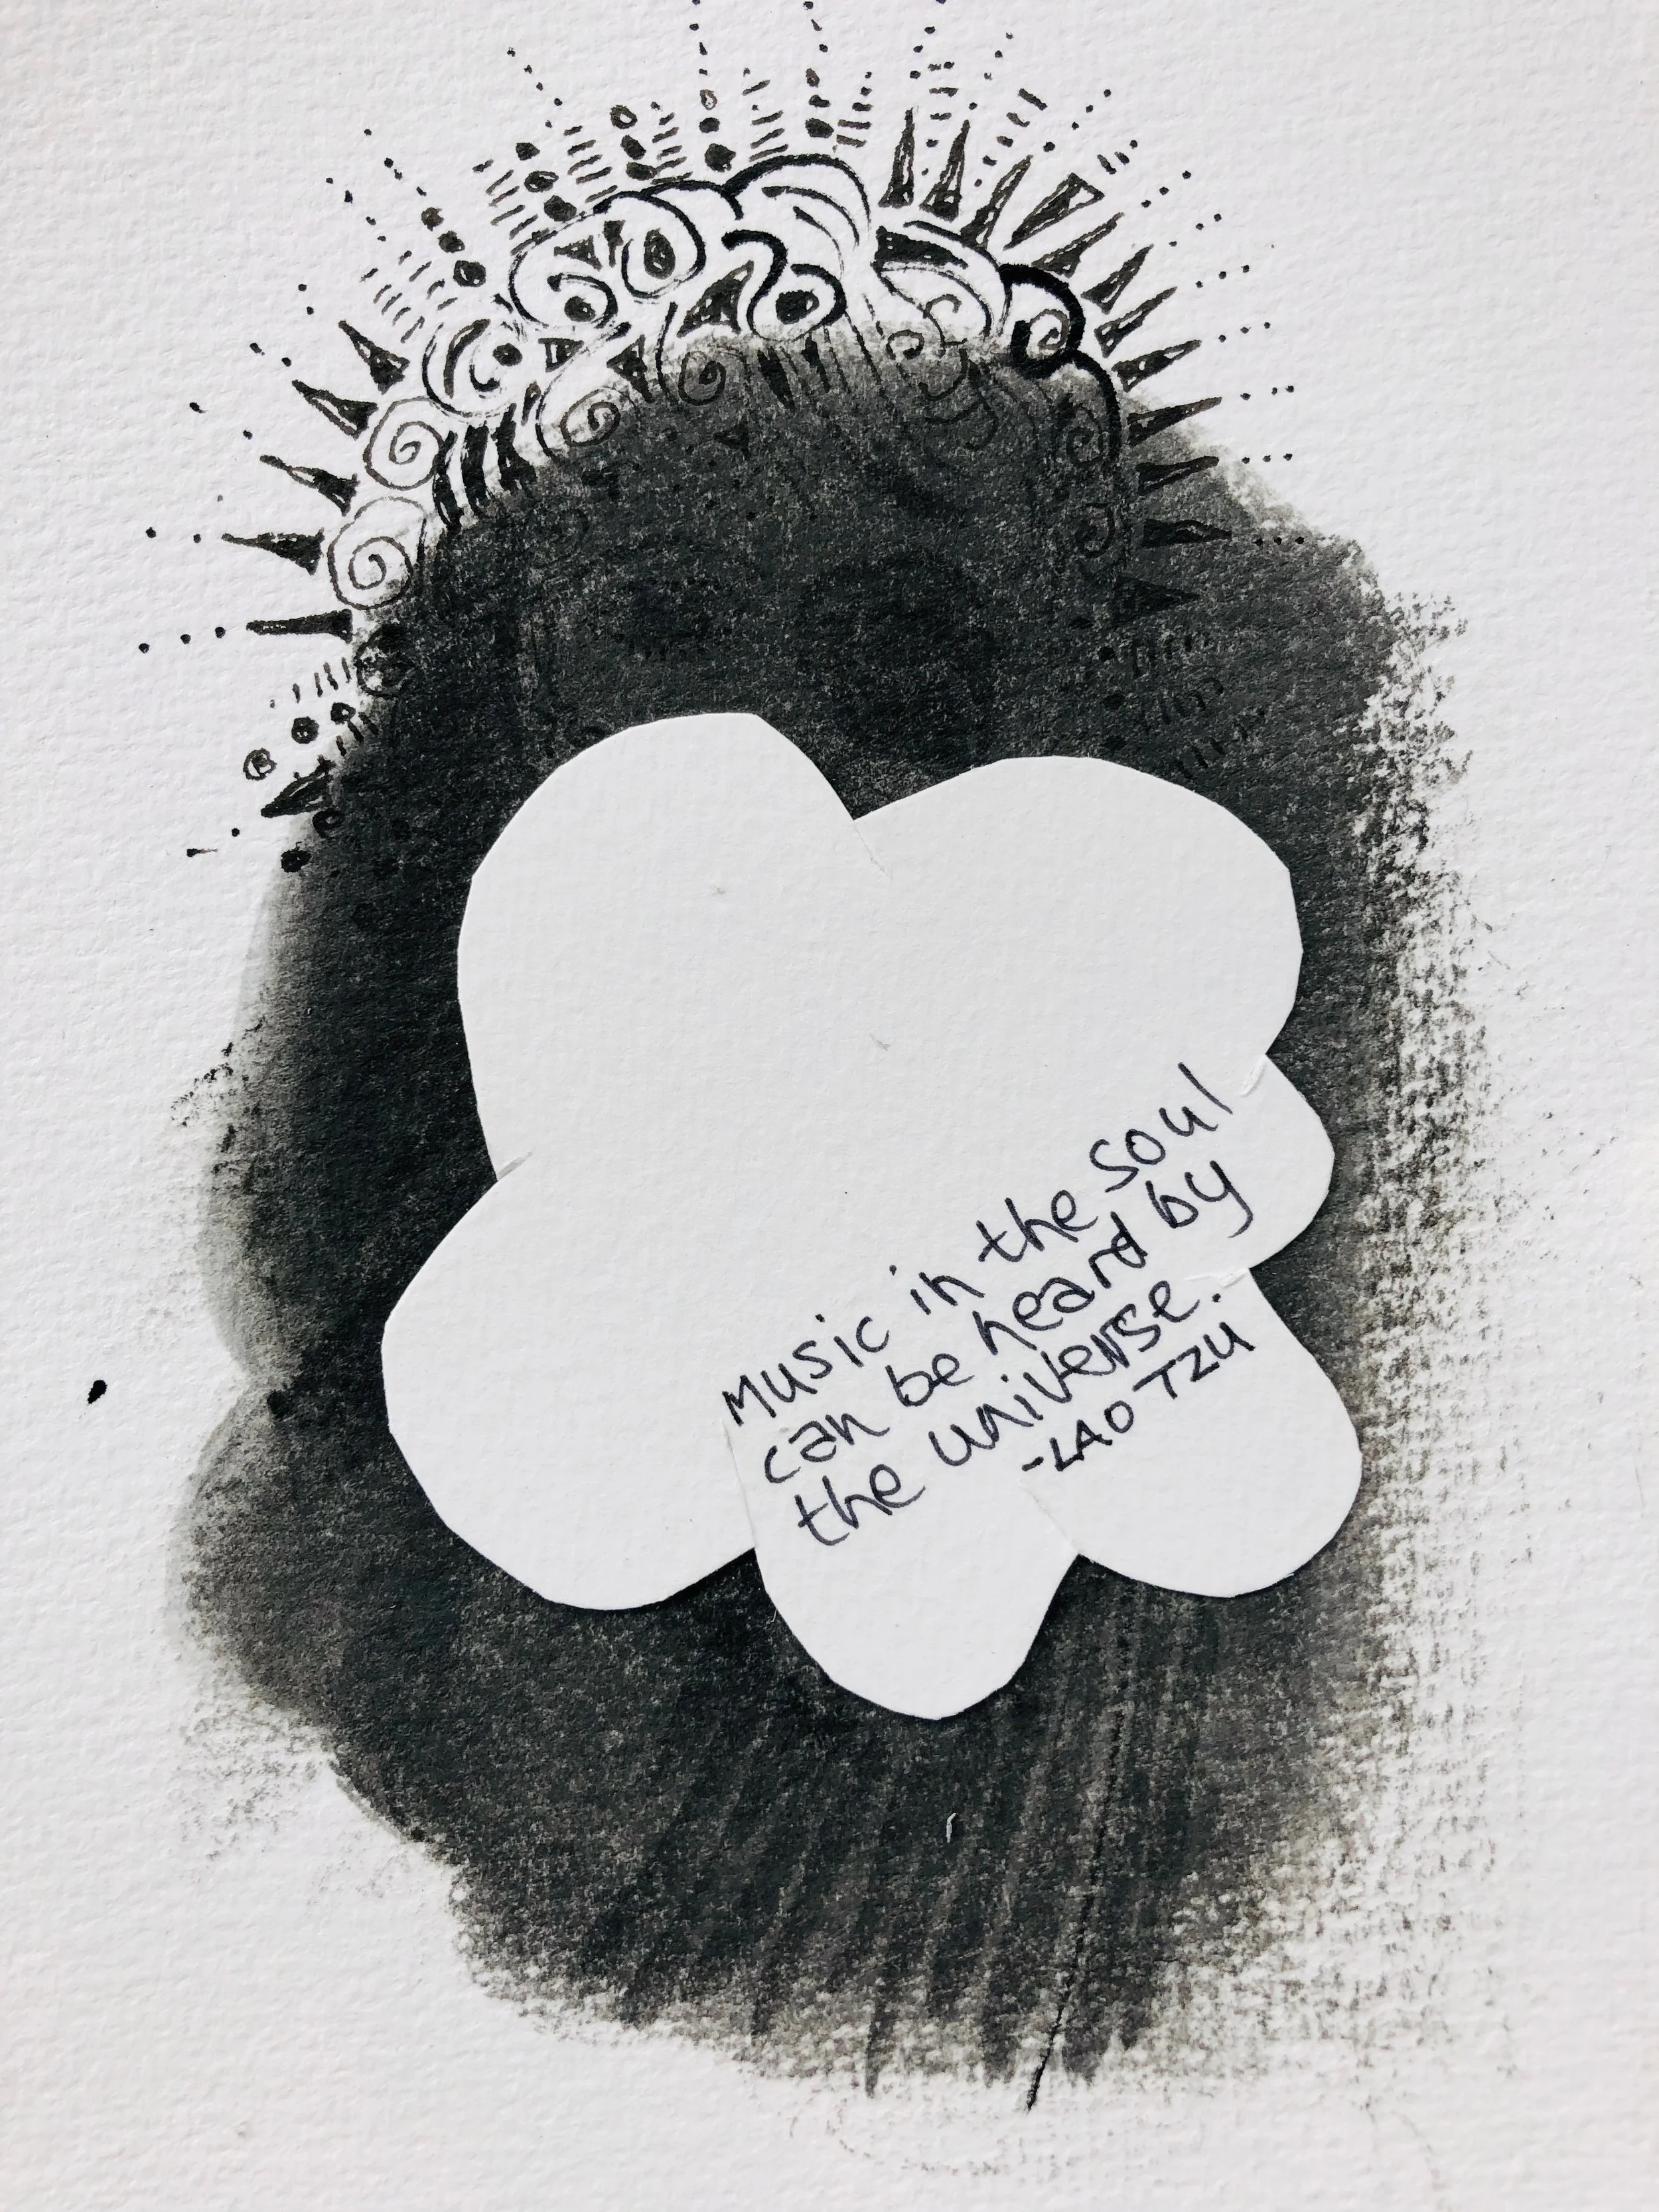 Music in the soul
can be heard by
the universe.
-LAO TZU